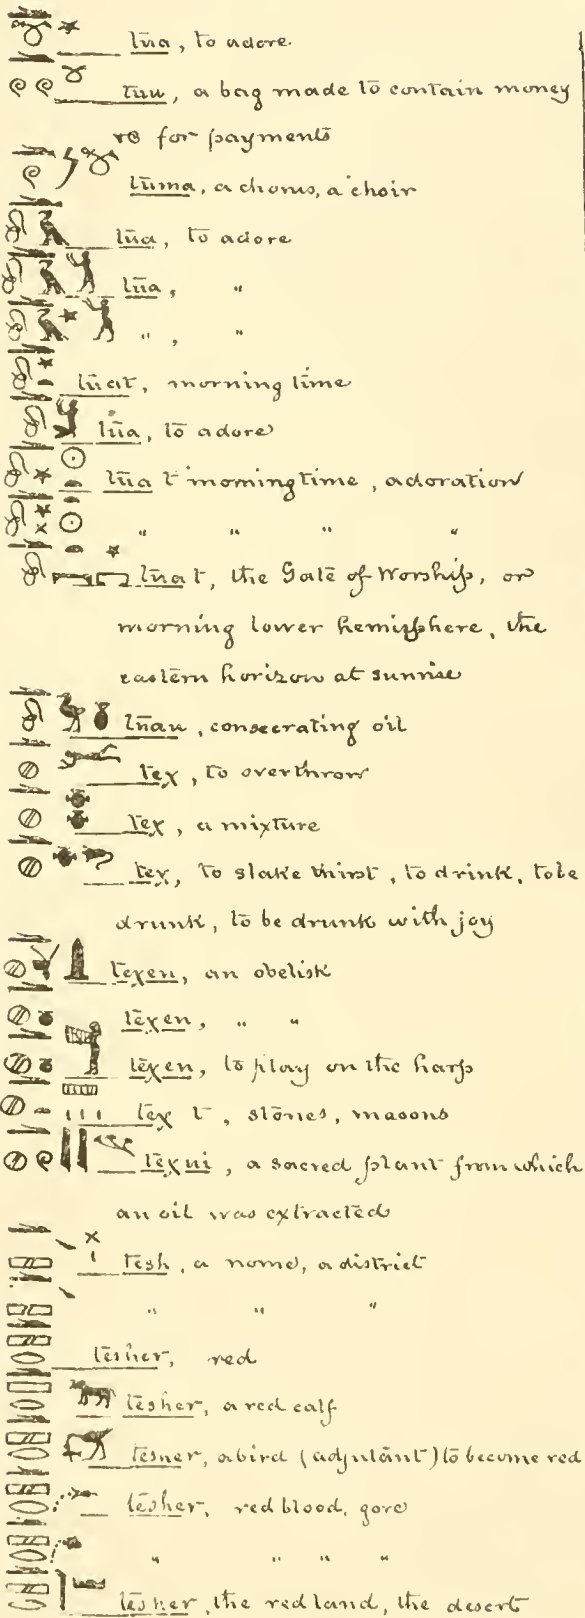 tūa, to adore
tuu, a bag made to contain money
for payments
tūma, a chorus, a choir
tūa, to adore
tūa, "
" , "
tūat, morning time
tūa, to adore
tūa t morning time, adoration
" " " "
tūa t, the Gate of Worship, or
morning lower hemisphere, the
eastern horizon at sunrise
tūau, consecrating oil
teχ, to overthrow
teχ, a mixture
teχ, to slake thirst, to drink, to be
drunk, to be drunk with joy
teχen, an obelisk
teχen, " "
teχen, to play on the harp
teχ t, stones, masons
teχui, a sacred plant from which
an oil was extracted
tesh, a nome, a district
" " "
tesher, red
tesher, a red calf
tesher, a bird (adjutant) to become red
tesher, red blood, gore
" " " "
tesher, the red land, the desert